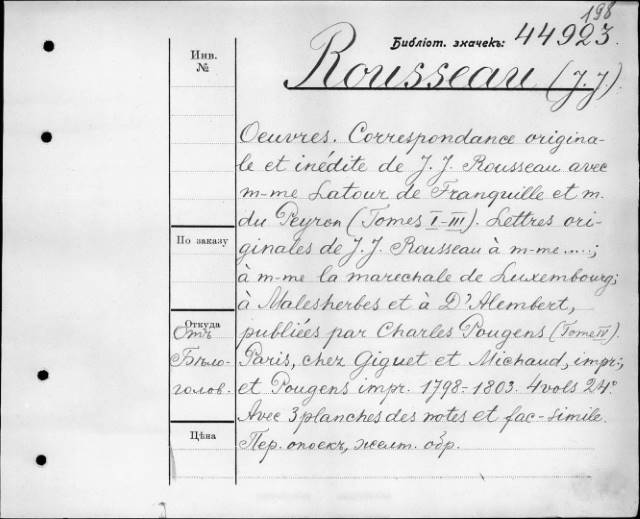 198
Библіот. значекъ: 44923.
Инв. №
Rousseau (J. J)
Oeuvres. Correspondance origina-
le et inédite de J. J. Rousseau avec
m-me Latour de Franquille et m.
du Peyron (Tomes I-III). Lettres ori-
По заказу
ginales de J. J. Rousseau à m-me.....;
à m-me la marechale de Luxembourg;
à Malesherbes et à D'Alembert,
Откуда
Отъ
publiées par Charles Pougens (Tome IV).
Бѣло-
Paris, chez Giguet et Michaud, impr.;
голов.
et Pougens impr. 1798-1803. 4 vols 24°
Avec 3 planches des notes et fac-simile.
Цѣна
Пер. опоекъ, желт. обр.